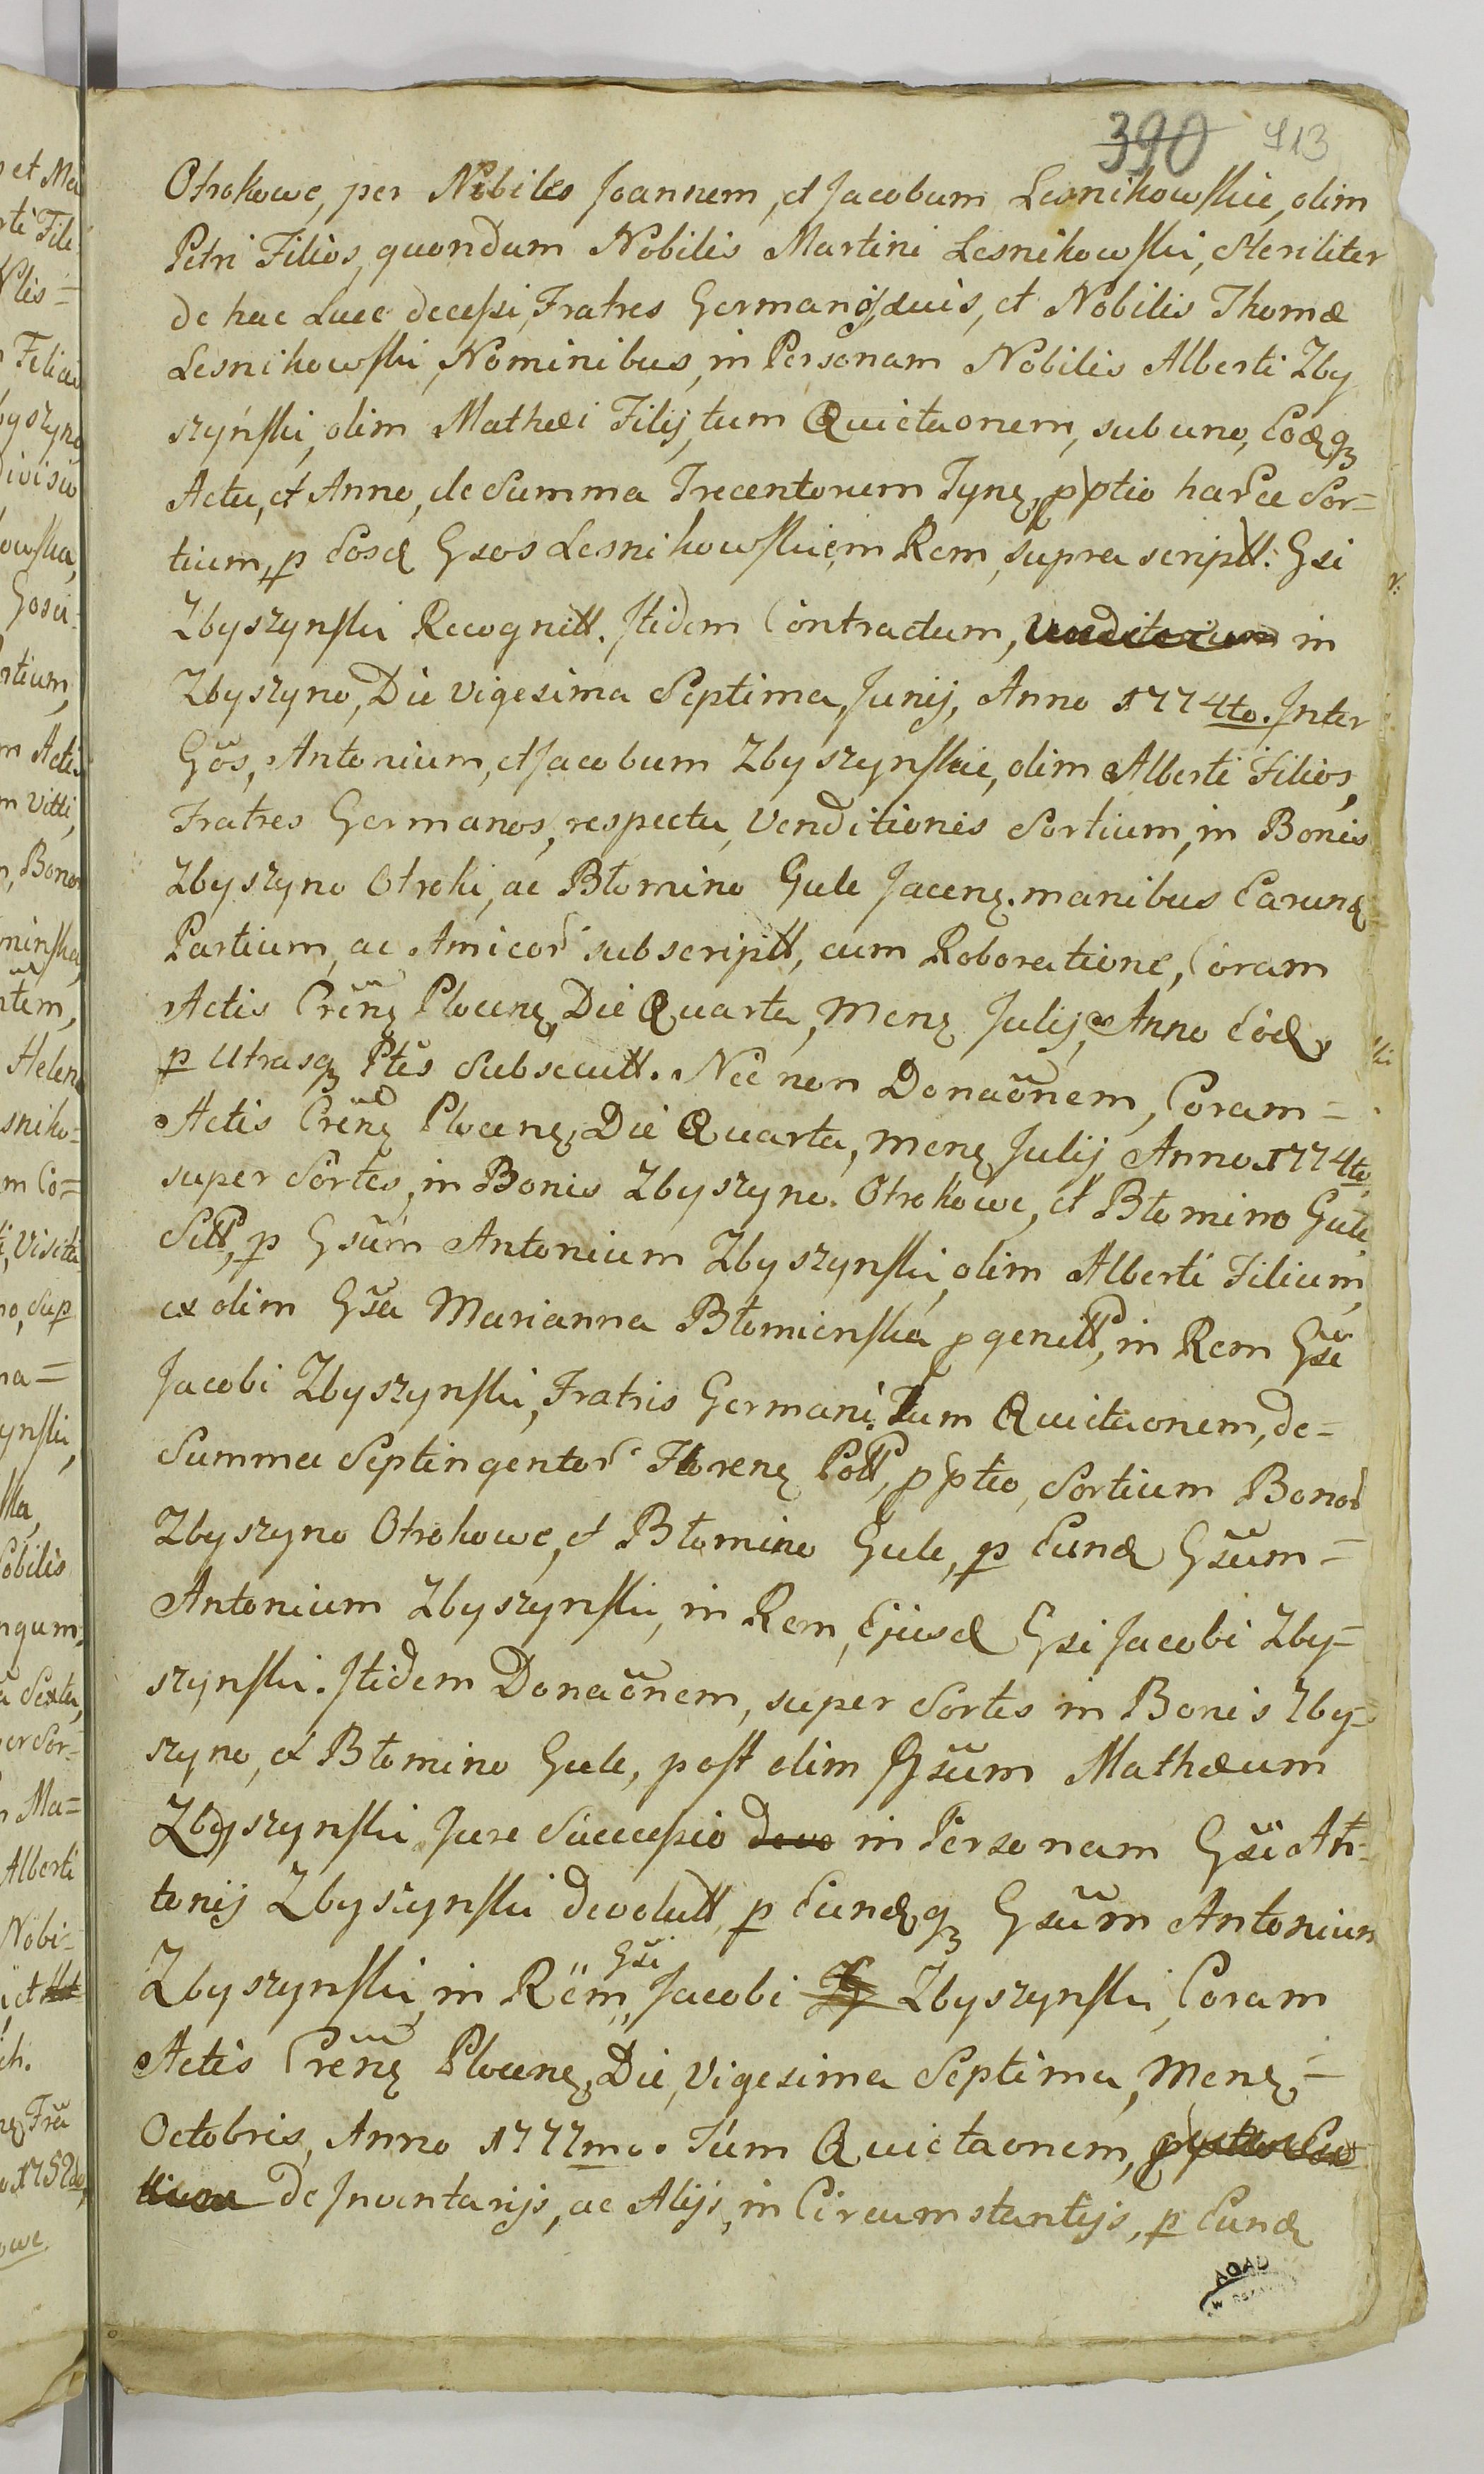 390 413
Otrokowe, per Nobiles Joannem, et Jacobum Lesnikowskie, olim
Petri Filios, quondam Nobilis Martini Lesnikowski, Steriliter
de hac Luce decessi, Fratres Germanos, suis, et Nobilis Thomæ
Lesnikowski, Nominibus, in Personam Nobilis Alberti Zby
szyński, olim Mathæi Filij, tum Quictaonem, sub uno, Eodq3
Actu, et Anno, de Summa Trecentorum Tynf, p ptio harce Sor=
tium, p Eosd Gsos Lesnikowskie, in Rem, supra scriptt: Gsi
Zbyszynski Recognitt. Itidem Contractum, in
Zbyszyno, Die Vigesima Septima, Junij, Anno 1774to. Inter
Gős, Antonium, et Jacobum Zbyszynskie, olim Alberti Filios,
Fratres Germanos, respectu, Venditionis Sortium, in Bonis
Zbyszyno Otroki, ac Błomino Gule Jacenz. manibus Earund
Partium, ac Amicor subscriptt, cum Roboratione, Coram
Actis Crenz Plocenz, Die Quarta, Menz Julij, Anno Eod,
p Utrasq3 Ptes Subsecutt. Nec non Donaonem, Coram=
Actis Crenz Plocenz, Die Quarta, Menz Julij Anno 1774to,
super Sortes, in Bonis Zbyszyno. Otrokowe, et Błomino Gule
Sitt, p Gsum Antonium Zbyszynski, olim Alberti Filium,
ex olim Gsa Marianna Błomienska pgenitt, in Rem Gsi
Jacobi Zbyszynski, Fratris Germani. Tum Quictaonem, de=
Summa Septingentor Florenz Poll, p ptio, Sortium Bonor
Zbyszyno Otrokowe, et Błomino Gule, p Eund Gsum=
Antonium Zbyszynski, in Rem, Ejusd Gsi Jacobi Zby=
szynski. Itidem Donaonem, super Sortes in Bonis Zby=
szyno, et Błomino Gule, post olim Gsum Mathæum
Zbyszynski Jure Successio in Personam Gsi An=
tonij Zbyszynski devolutt, p Eundq3 Gsum Antonium
Gsi
Zbyszynski, in Rem, Jacobi Zbyszynski, Coram
Actis Crenz Plocenz, Die, Vigesima Septima, Menz=
Octobris, Anno 1777mo. Tum Quictaonem,
de Inventarijs, ac Alijs, in Circumstantijs, p Eund
AGAD